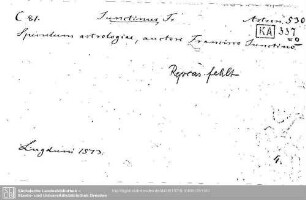 C 81. Junctinus, Fr. Astron. 530
KA 337
Speculum astrologiae, auctore Francisco Junctino
Repros fehlt
Lugduni 1573.
4.
Sächsische Landesbibliothek -
Staats- und Universitätsbibliothek Dresden